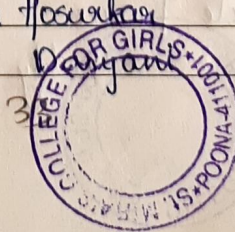 Hosurkar
3
ST. MIRA'S COLLEGE FOR GIRLS * POONA-411001 *